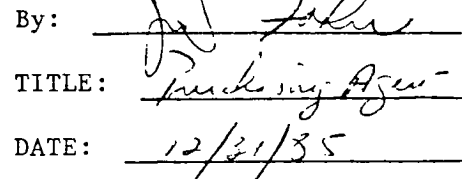 By:
TITLE: Purchasing Agent
DATE: 12/31/85